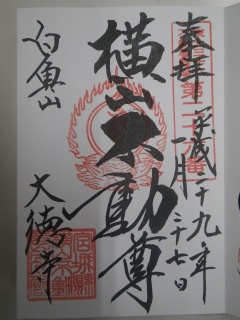 奉拝
平成二十九年
一月二十七日
横山不動尊
白魚山
大徳寺